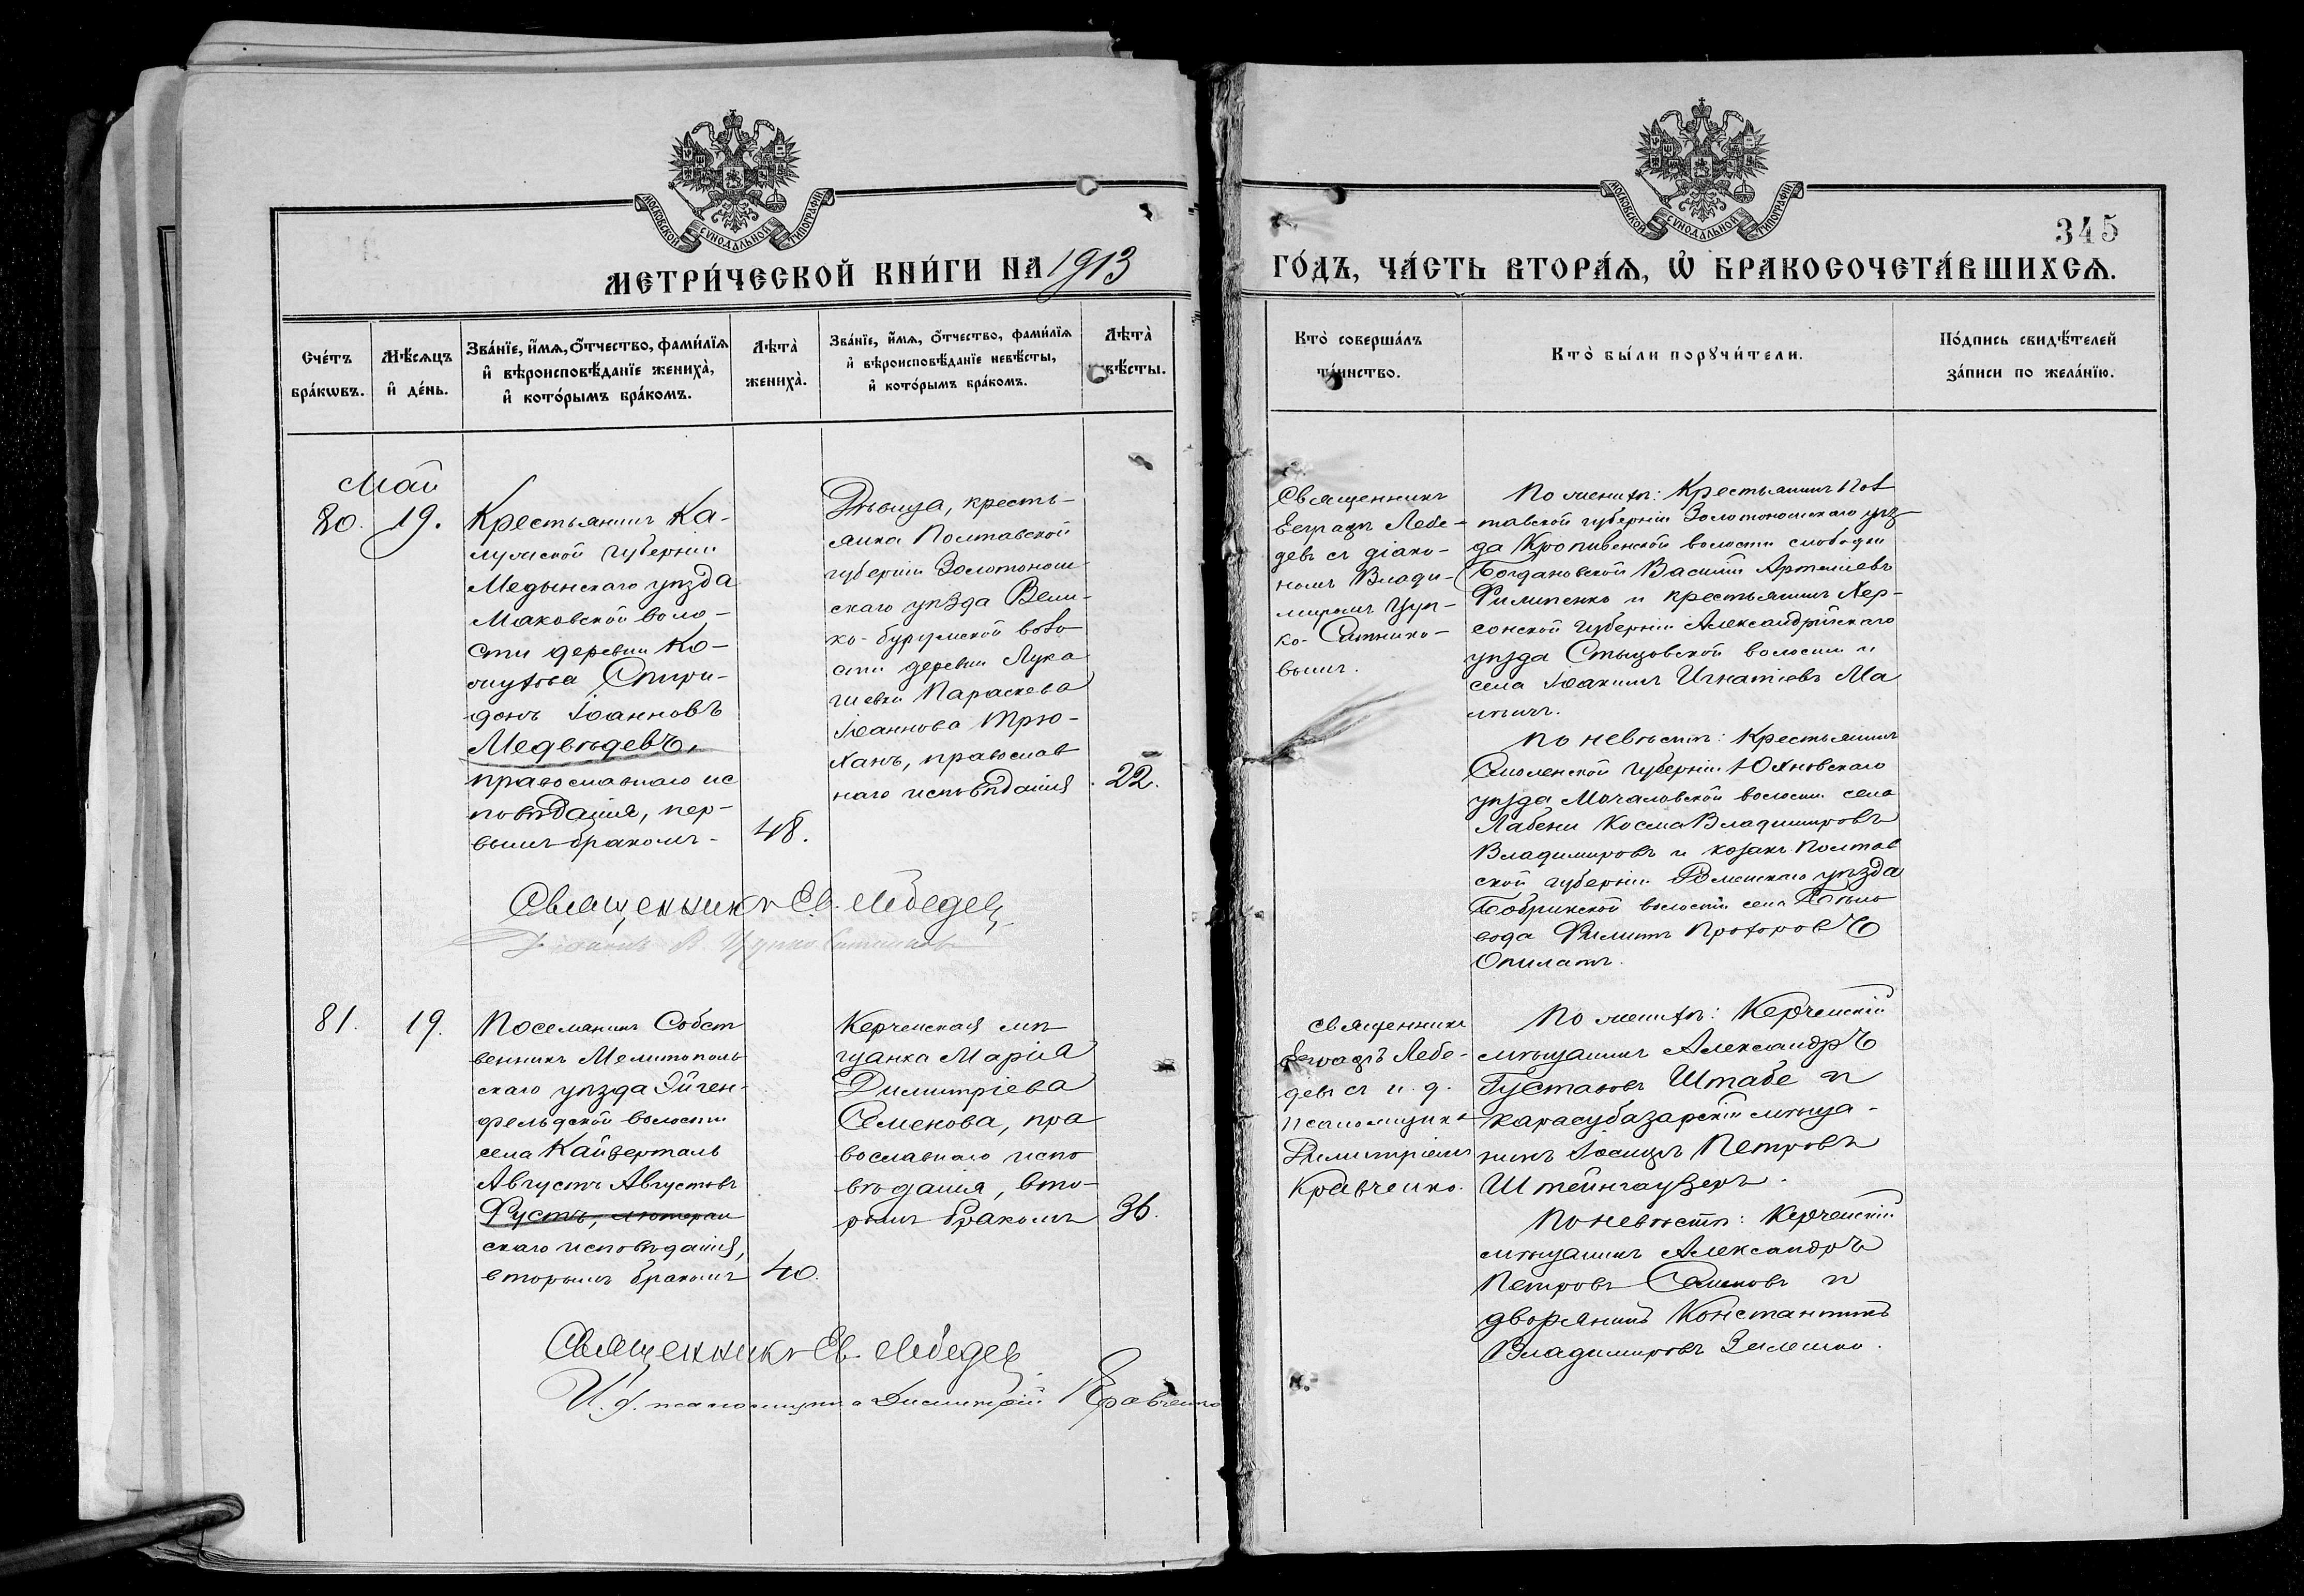 МОСКОВСКОЙ СУНОДАЛЬНОЙ ТИПОГРАФІИ
МЕТРИ́ЧЕСКОЙ КНИ́ГИ НА 1913
Сче́тъ бра́кωвъ.
Мѣ́сяцъ и҆ де́нь.
Зва́нїе, и҆́мѧ, ѻ҆́тчество, фами́лїѧ
и҆ вѣроисповѣ́данїе жениха̀,
и҆ кото́рымъ бра́комъ.
Лѣта̀ жениха̀.
Зва́нїе, и҆́мѧ, ѻ҆́тчество, фами́лїѧ
и҆ вѣроисповѣ́данїе невѣ́сты,
и҆ кото́рымъ бра́комъ.
Лѣта̀
вѣ́сты.
Май
80.
19.
Крестьянинъ Ка-
лужской губерніи
Медынскаго уѣзда
Маковской воло-
сти деревни Ко-
Спири-
донъ Іоанновъ
Медвѣдевъ,
православнаго ис
повѣданія, пер-
вымъ бракомъ
48.
Дѣвица, кресть-
янка Полтавской
губерніи Золотонош
скаго уѣзда Вели-
ко-буримской воло
сти деревни Лука
шевки Параскева
Іоаннова Трю-
ханъ, православ
наго исповѣданія
22.
Священникъ Ев. Лебедев
Діаконъ В. Цупко Ситников
81.
19.
Поселянинъ Собст
венникъ Мелитополь
скаго уѣзда Эйген-
фельдской волости
села Кайзерталь
Августъ Августовъ
Фустъ, лютеран
скаго исповѣданія,
вторымъ бракомъ
40.
Керченская мѣ
щанка Марія
Димитріева
Семенова, пра
вославнаго испо
вѣданія, вто-
рымъ бракомъ
36.
Священникъ Ев. Лебедев
И. д. псаломщика Димитрій Кравченко
МОСКОВСКОЙ СУНОДАЛЬНОЙ ТИПОГРАФІИ
345
ГО́ДЪ, ЧА́СТЬ ВТОРА́Ѧ, Ѡ҆ БРАКОСОЧЕТА́ВШИХСѦ.
Кто̀ соверша́лъ
та́инство.
Кто̀ бы́ли порꙋчи́тели.
По́дпись свидѣ́телей
за́писи по жела́нїю.
Священникъ
Евграфъ Лебе-
девъ съ діако-
номъ Влади-
миромъ Цуп-
ко-Ситнико-
вымъ.
По женихѣ: Крестьянинъ Пол
тавской губерніи Золотоношскаго уѣз
да Кропивенской волости слободки
Богдановской Василій Артеміевъ
Филипенко и крестьянинъ Хер-
сонской губерніи Александрійскаго
уѣзда Стыцовской волости и
села Іоакимъ Игнатіевъ Ма

По невѣстѣ: Крестьянинъ
Смоленской губерніи Юхновскаго
уѣзда Мочаловской волости села
Косма Владимировъ
Владимировъ и козакъ Полтав
ской губерніи Роменскаго уѣзда
Бобрикской волости села Бѣло
вода Филиппъ Прохоровъ
Опилатъ.
Священникъ
Евграфъ Лебе-
девъ съ и. д.
псаломщика
Димитріемъ
Кравченко.
По женихѣ: Керченскій
мѣщанинъ Александръ
Густавовъ Штабе и
карасубазарскій мѣща-
нинъ Іосифъ Петровъ
Штейнгаузеръ.
По невѣстѣ: Керченскій
мѣщанинъ Александръ
Петровъ Семеновъ и
дворянинъ Константинъ
Владимировъ